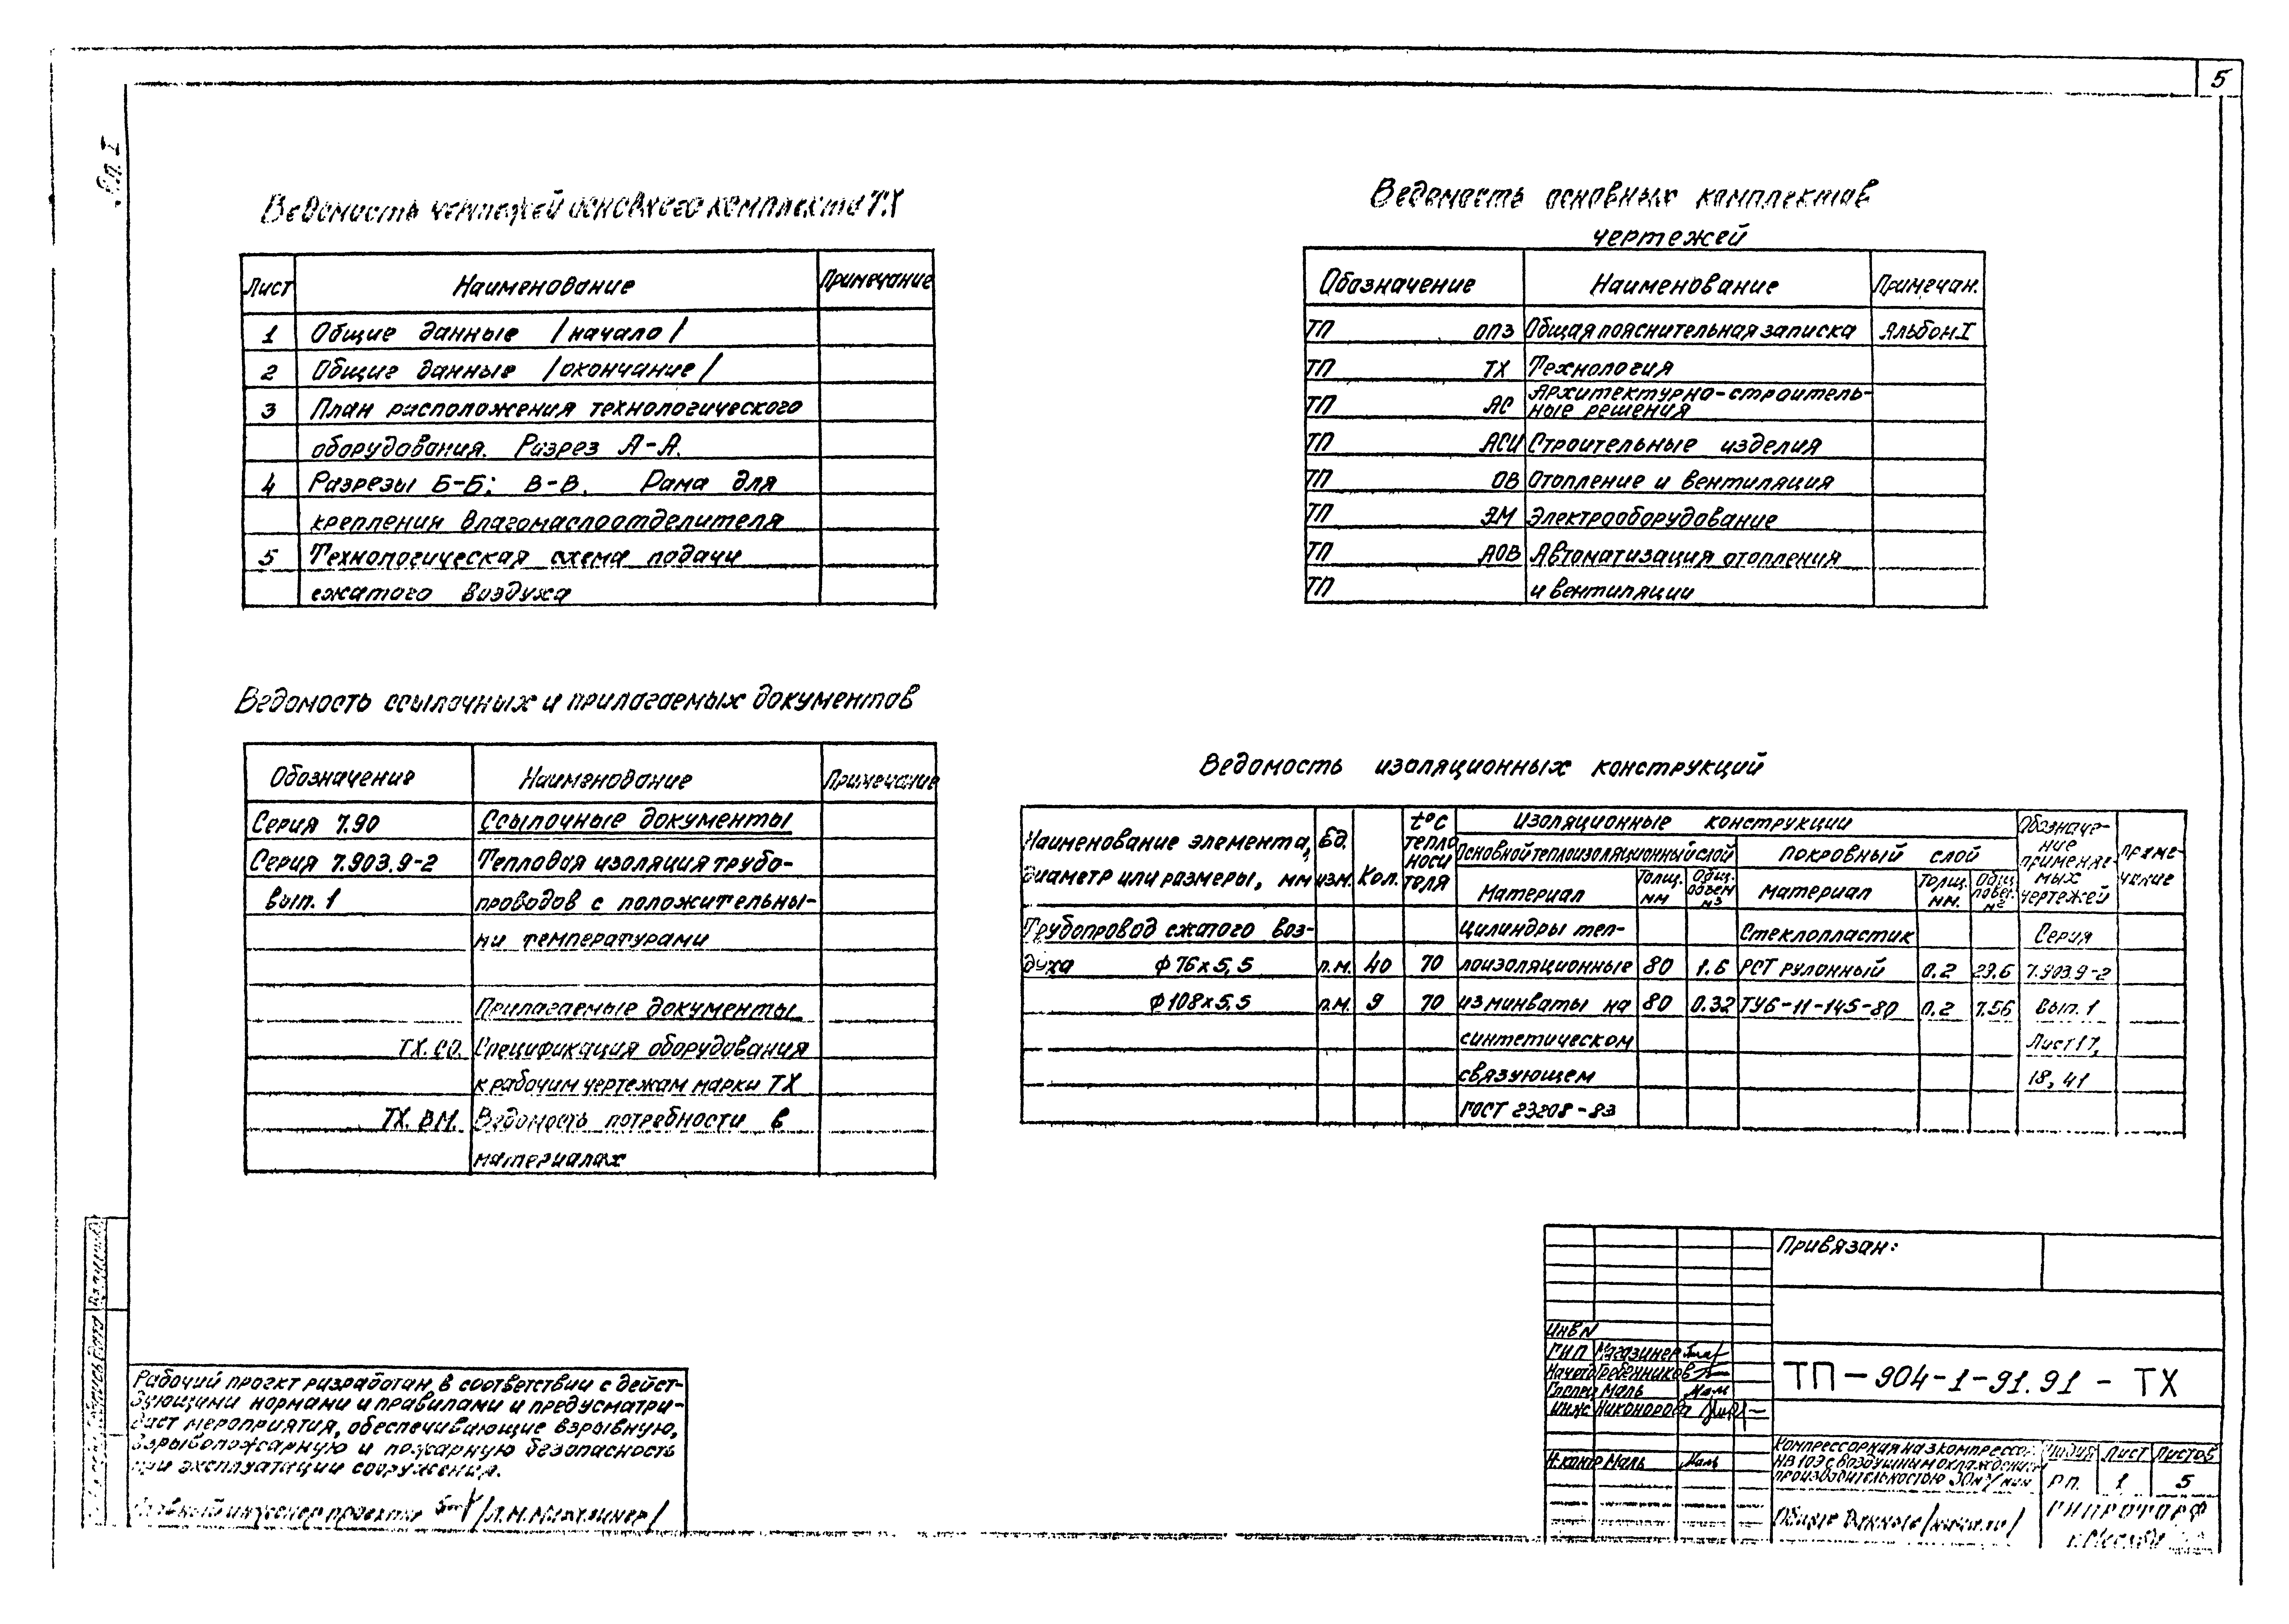 5
Ведомость чертежей основного комплекта ТХ
Лист Наименование Примечание
1 Общие данные /начало/
2 Общие данные /окончание/
3 План расположения технологического
оборудования. Разрез А-А.
4 Разрезы Б-Б; В-В. Рама для
крепления влагомаслоотделителя
5 Технологическая схема подачи
сжатого воздуха
Ведомость основных комплектов
чертежей
Обозначение Наименование Примечан.
ТП ОПЗ Общая пояснительная записка Альбом I
ТП ТХ Технология
ТП АС Архитектурно-строитель-
ные решения
ТП АСИ Строительные изделия
ТП ОВ Отопление и вентиляция
ТП ЭМ Электрооборудование
ТП АОВ Автоматизация отопления
ТП и вентиляции
Ведомость ссылочных и прилагаемых документов
Обозначение Наименование Примечание
Серия 7.90 Ссылочные документы
Серия 7.903.9-2 Тепловая изоляция трубо-
вып. 1 проводов с положительны-
ми температурами
Прилагаемые документы
ТХ.СО. Спецификация оборудования
к рабочим чертежам марки ТХ
ТХ. ВМ. Ведомость потребности в
материалах
Ведомость изоляционных конструкций
Наименование элемента,
диаметр или размеры, мм
Ед.
изм.
Кол.
t°C
тепло
носи
теля
Изоляционные конструкции
Основной теплоизоляционный слой
Покровный слой
Материал
Толщ.
мм
Общ.
объем
м3
Материал
Толщ.
мм.
Общ.
повер.
м2
Обозначе-
ние
применяе-
мых
чертежей
Приме-
чание
Трубопровод сжатого воз- Цилиндры теп- Стеклопластик Серия
духа ф 76х5,5 п.м. 40 70 лоизоляционные 80 1.6 РСТ рулонный 0.2 29.6 7.903.9-2
ф 108х5,5 п.м. 9 70 из минваты на 80 0.32 ТУ6-11-145-80 0.2 7.56 Вып. 1
синтетическом Лист 17,
связующем 18, 41
ГОСТ 23208-83
Рабочий проект разработан в соответствии с дейст-
вующими нормами и правилами и предусматри-
вает мероприятия, обеспечивающие взрывную,
взрывопожарную и пожарную безопасность
при эксплуатации сооружения.
Главный инженер проекта
Привязан:
Инв N
ГИП Магазинер
Гребенников
Маль
Инж Никонорова
Н.контр Маль
ТП-904-1-91.91 - ТХ
Компрессорная на 3 компрессора
НВ 10Э с воздушным охлаждением
производительностью 30м³/мин
Стадия Лист Листов
Р.П. 1 5
Общие данные /начало/
ГИПРОТОРФ
г. Москва